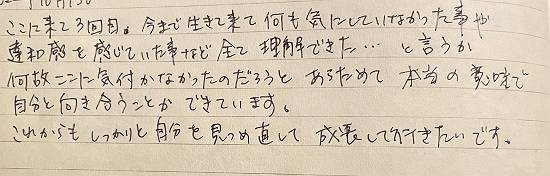 ここに来て3回目。今まで生きて来て何も気にしていなかった事や
違和感を感じていた事など全て理解できた…と言うか
何故ここに気付かなかったのだろうとあらためて本当の意味で
自分と向き合うことができています。
これからもしっかりと自分を見つめ直して成長して行きたいです。